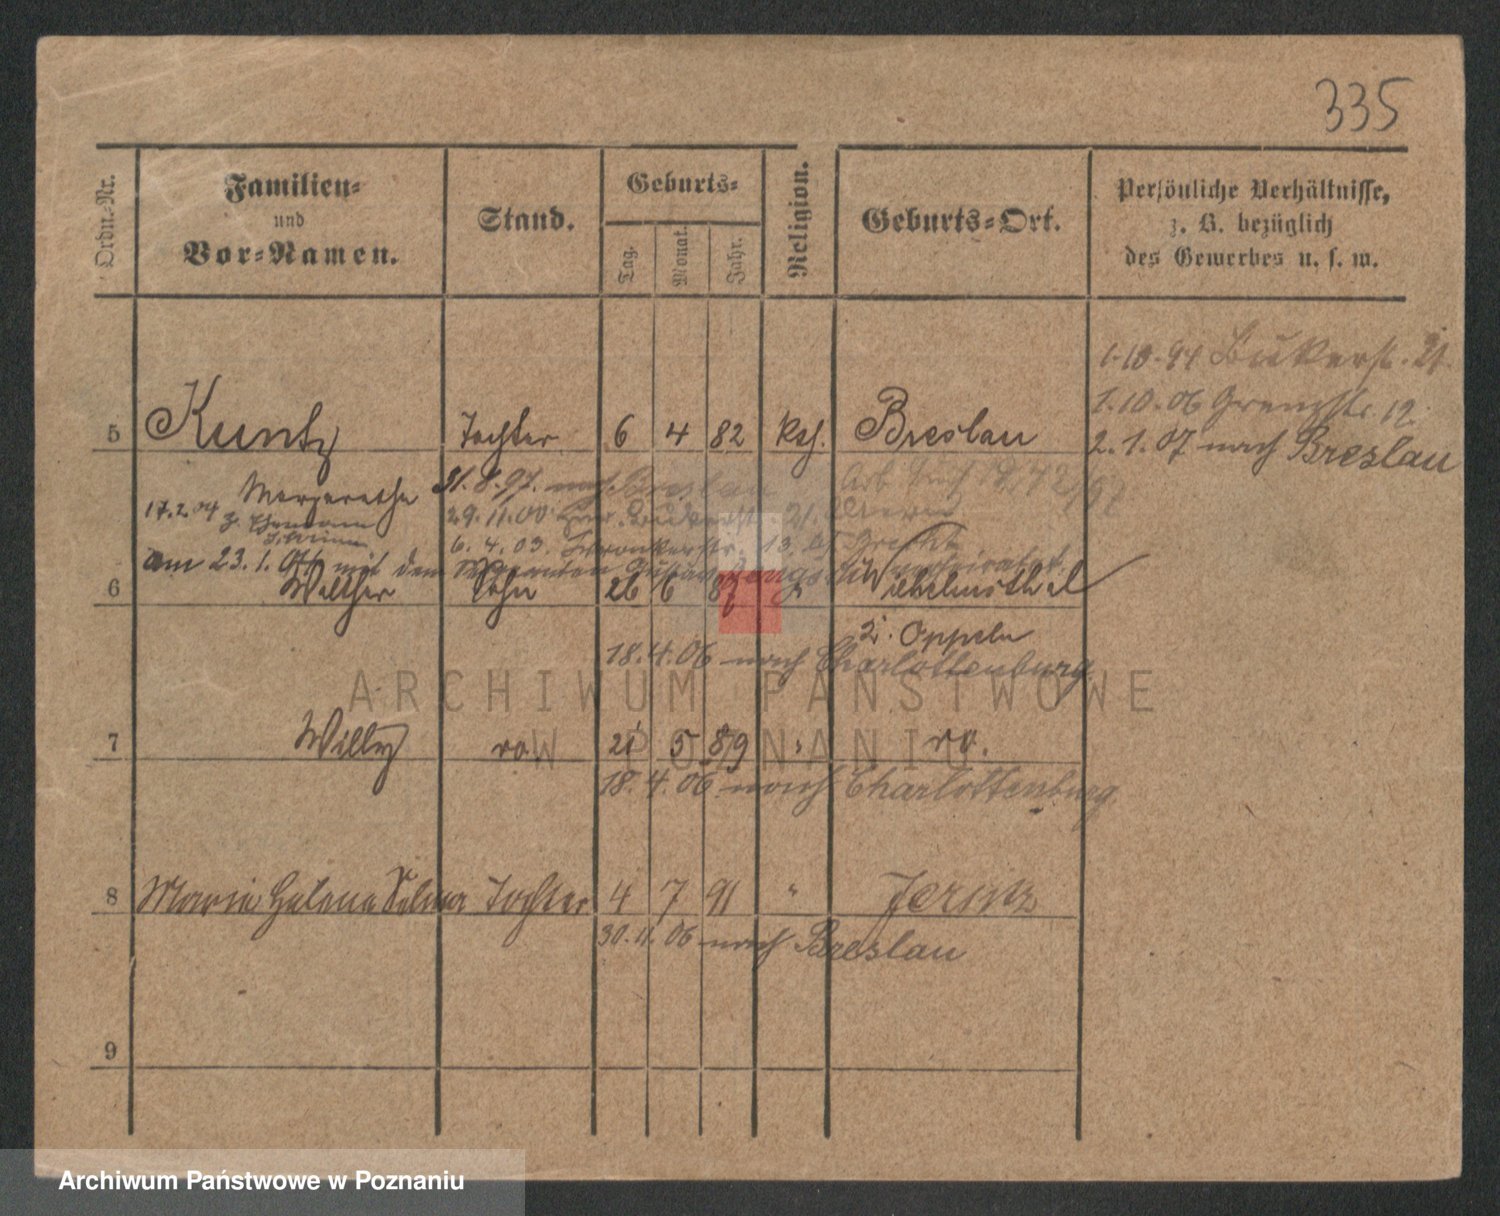 335
Ordn.-Nr.
Familien-
und
Vor-Namen.
Stand.
Geburts-
Tag.
Monat.
Jahr.
Religion.
Geburts-Ort.
Persönliche Verhältnisse,
z. B. bezüglich
des Gewerbes u. s. w.
1.10.94 Bukerst. 21.
1.10.06 Grenzstr. 12.
2.1.07 nach Breslau
5 Kuntz Tochter 6 4 82 kath. Breslau
Margarethe 31.8.97. nach Breslau
17.2.04 z. Ehemann
29.11.00 Bukerstr. 21. Eltern
6.4.03. Wronkerstr. 13
am 23.1.04 mit dem Gustav verheiratet.
6 Walther Sohn 26 6 87 Wilhelmsthal
b. Oppeln
18.4.06 nach Charlottenburg
7 Willy 21 5 89
18.4.06 nach Charlottenburg
8 Marie Helene Selma Tochter 4 7 91 " Jersitz
30.11.06 nach Breslau
9
ARCHIWUM PAŃSTWOWE
W POZNANIU
Archiwum Państwowe w Poznaniu